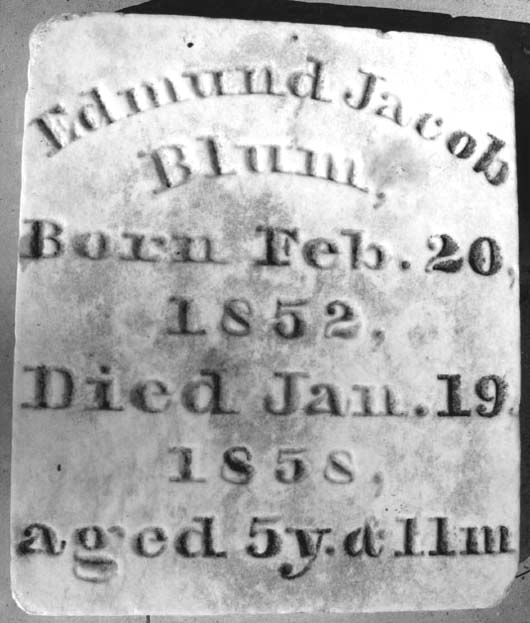 Edmund Jacob
Blum,
Born Feb. 20,
1852,
Died Jan. 19,
1858,
aged 5y. & 11m